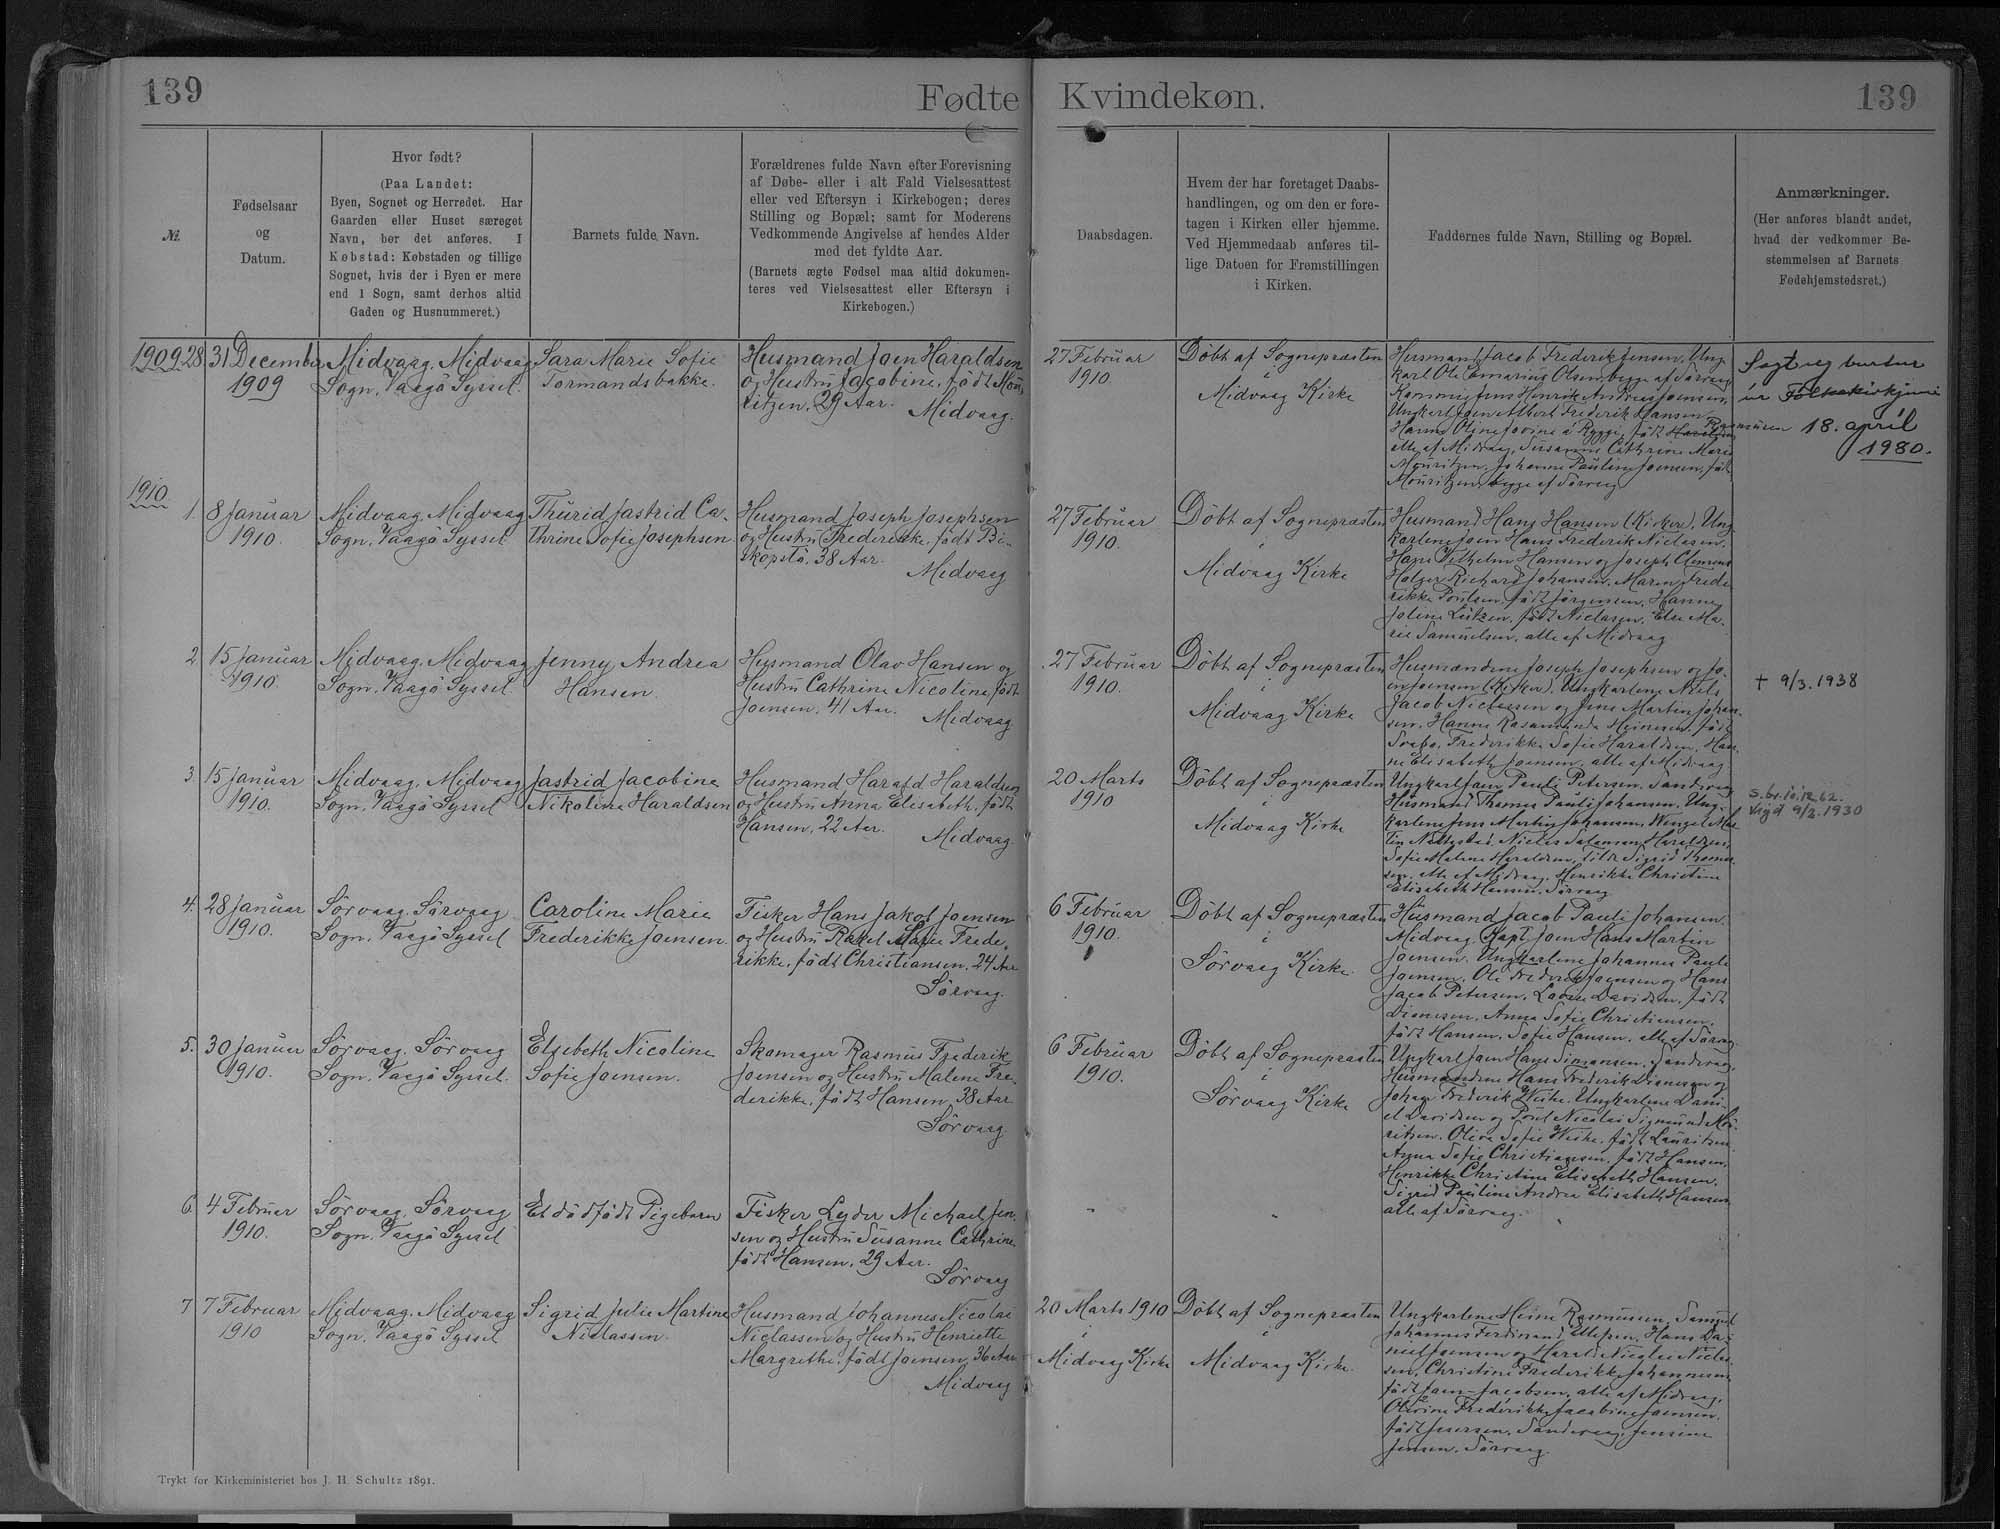 139
Fødte
Kvindekøn.
139
№.
Fødselsaar
og
Datum.
Hvor født?
(Paa Landet:
Byen, Sognet og Herredet. Har
Gaarden eller Huset særeget
Navn, bør det anføres. I
Købstad: Købstaden og tillige
Sognet, hvis der i Byen er mere
end 1 Sogn, samt derhos altid
Gaden og Husnummeret.)
Barnets fulde Navn.
Forældrenes fulde Navn efter Forevisning
af Døbe- eller i alt Fald Vielsesattest
eller ved Eftersyn i Kirkebogen; deres
Stilling og Bopæl; samt for Moderens
Vedkommende Angivelse af hendes Alder
med det fyldte Aar.
(Barnets ægte Fødsel maa altid dokumen-
teres ved Vielsesattest eller Eftersyn i
Kirkebogen.)
Daabsdagen.
Hvem der har foretaget Daabs-
handlingen, og om den er fore-
tagen i Kirken eller hjemme.
Ved Hjemmedaab anføres til-
lige Datoen for Fremstillingen
i Kirken.
Faddernes fulde Navn, Stilling og Bopæl.
Anmærkninger.
(Her anføres blandt andet,
hvad der vedkommer Be-
stemmelsen af Barnets
Fødehjemstedsret.)
1909.
28
31 December
1909
Midvaag. Midvaag
Sogn. Vaagö Syssel.
Sara Marie Sofie
Tormandsbakke.
Husmand Joen Haraldsen
og Hustru Jacobine, födt Mou-
ritzen. 29 Aar.
Midvaag.
27 Februar
1910.
Döbt af Sognepræsten
i
Midvaag Kirke
Husmand Jacob Frederik Jensen. Ung-
karl Ole Olsen, begge af Sörvaag
Jens Henrik Andreas Joensen,
Ungkarl Joen Albert Frederik Hansen
Hanne Oline Jovine á Ryggi, födt Rasmussen
alle af Midvaag, Susanne Cathrine Marie
Mouritzen, Johanne Pauline Joensen, födt
Mouritzen, begge af Sörvaag
Sagt seg burtur
úr Fólkakirkjuni
18. apríl
1980.
1910.
1.
8 Januar
1910.
Midvaag. Midvaag
Sogn. Vaagö Syssel
Thurid Jastrid Ca-
thrine Sofie Josephsen
Husmand Joseph Josephsen
og Hustru Frederikke, födt Bi-
skopstö. 38 Aar.
Midvaag
27 Februar
1910.
Döbt af Sognepræsten
i
Midvaag Kirke
Husmand Hans Hansen (Kirker). Ung-
karlene Joen Hans Frederik Niclasen.
Hans Vilhelm Hansen og Joseph Clement
Holger Richard Johansen. Maren Frede-
rikke Poulsen, födt Jörgensen. Hanne
Joline Lützen, födt Niclasen. Else Ma-
rie Samuelsen. alle af Midvaag
2.
15 Januar
1910.
Midvaag. Midvaag
Sogn. Vaagö Syssel.
Jenny Andrea
Hansen.
Husmand Olav Hansen og
Hustru Cathrine Nicoline, födt
Joensen. 41 Aar.
Midvaag
27 Februar
1910.
Döbt af Sognepræsten
i
Midvaag Kirke
Husmændene Joseph Josephsen og Jo-
en Joensen (Kirker). Ungkarlene Niels
Jacob Niclassen og Jens Martin Johan-
sen. Hanne Rosamunda Heinesen, födt
Svabo, Frederikke Sofie Haraldsen, Han-
ne Elisabeth Joensen, alle af Midvaag
† 9/3. 1938
3.
15 Januar
1910.
Midvaag. Midvaag
Sogn. Vaagö Syssel
Jastrid Jacobine
Nikoline Haraldsen
Husmand Harald Haraldsen
og Hustru Anna Elisabeth, födt
Hansen, 22 Aar.
Midvaag
20 Marts
1910
Döbt af Sognepræsten
i
Midvaag Kirke
Ungkarl Joen Pauli Petersen, Sandevaag
Husmand Thomas Pauli Johansen. Ung-
karlene Jens Martin Johansen, Wenzel Mar-
tin Haraldsen,
Sofie Malene Haraldsen, Sigrid Thom-
sen. alle af Midvaag. Henrikke Christine
Elisabeth Hansen. Sörvaag
s. br. 10.12.62.
Vigd 9/2. 1930
4.
28 Januar
1910.
Sörvaag. Sörvaag
Sogn. Vaagö Syssel
Caroline Marie
Frederikke Joensen.
Fisker Hans Jakob Joensen
og Hustru Rakel Sofie Frede-
rikke, födt Christiansen, 24 Aar
Sörvaag.
6 Februar
1910.
Döbt af Sognepræsten
i
Sörvaag Kirke
Husmand Jacob Pauli Johansen.
Midvaag. Kapt. Joen Hans Martin
Joensen. Ungkarlene Johannes Pauli
Joensen. Ole Frederik Joensen og Hans
Jacob Petersen. Davidsen, födt
Dionesen. Anna Sofie Christiansen,
födt Hansen. Sofie Hansen. alle af Sörvaag.
5.
30 Januar
1910.
Sörvaag. Sörvaag
Sogn. Vaagö Syssel.
Elsebeth Nicoline
Sofie Joensen.
Skomager Rasmus Frederik
Joensen og Hustru Malene Fre-
derikke, födt Hansen, 38 Aar
Sörvaag
6 Februar
1910.
Döbt af Sognepræsten
i
Sörvaag Kirke
Ungkarl Joen Hans Simonsen, Sandevaag,
Husmændene Hans Frederik Dionesen og
Johan Frederik Weihe. Ungkarlene Dani-
el Davidsen og Poul Nicolai Sigmund Mou-
ritzen. Olive Sofie Weihe, födt Lauritsen
Anna Sofie Christiansen, födt Hansen,
Henrikke Christine Elisabeth Hansen.
Sigrid Pauline Andrea Elisabeth Hansen
alle af Sörvaag.
6.
4 Februar
1910.
Sörvaag. Sörvaag
Sogn. Vaagö Syssel
Et dödfödt Pigebarn
Fisker Leyder Michael Jen-
sen og Hustru Susanne Cathrine
födt Hansen, 29 Aar.
Sörvaag
"
"
7
7 Februar
1910
Midvaag. Midvaag
Sogn. Vaagö Syssel
Sigrid Julie Martine
Niclassen.
Husmand Johannes Nicolai
Niclassen og Hustru Henriette
Margrethe, födt Joensen, 36 Aar
Midvaag
20 Marts 1910
i
Midvaag Kirke
Döbt af Sognepræsten
i
Midvaag Kirke.
Ungkarlene Heine Rasmussen, Samuel
Johannes Ferdinand Ellefsen, Hans Da-
niel Joensen og Harald Nicolai Niclas-
sen, Christine Frederikke Johannesen,
födt Joen-Jacobsen, alle af Midvaag,
Olevine Frederikke Jacobine Joensen,
födt Sandevaag, Jensine
Jensen. Sörvaag.
Trykt for Kirkeministeriet hos J. H. Schultz 1891.